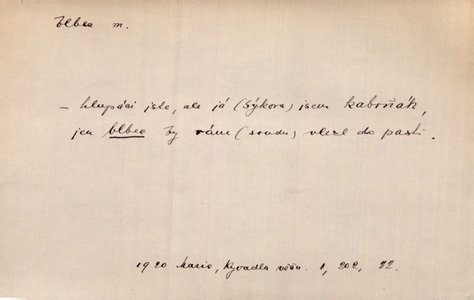 blbec m.
– hlupáci jste, ale já (Sýkora) jsem kabrňák,
jen blbec by vám (soudu) vlezl do pasti.
1920 Maria, Kyvadla věčn. 1, 202, 22.